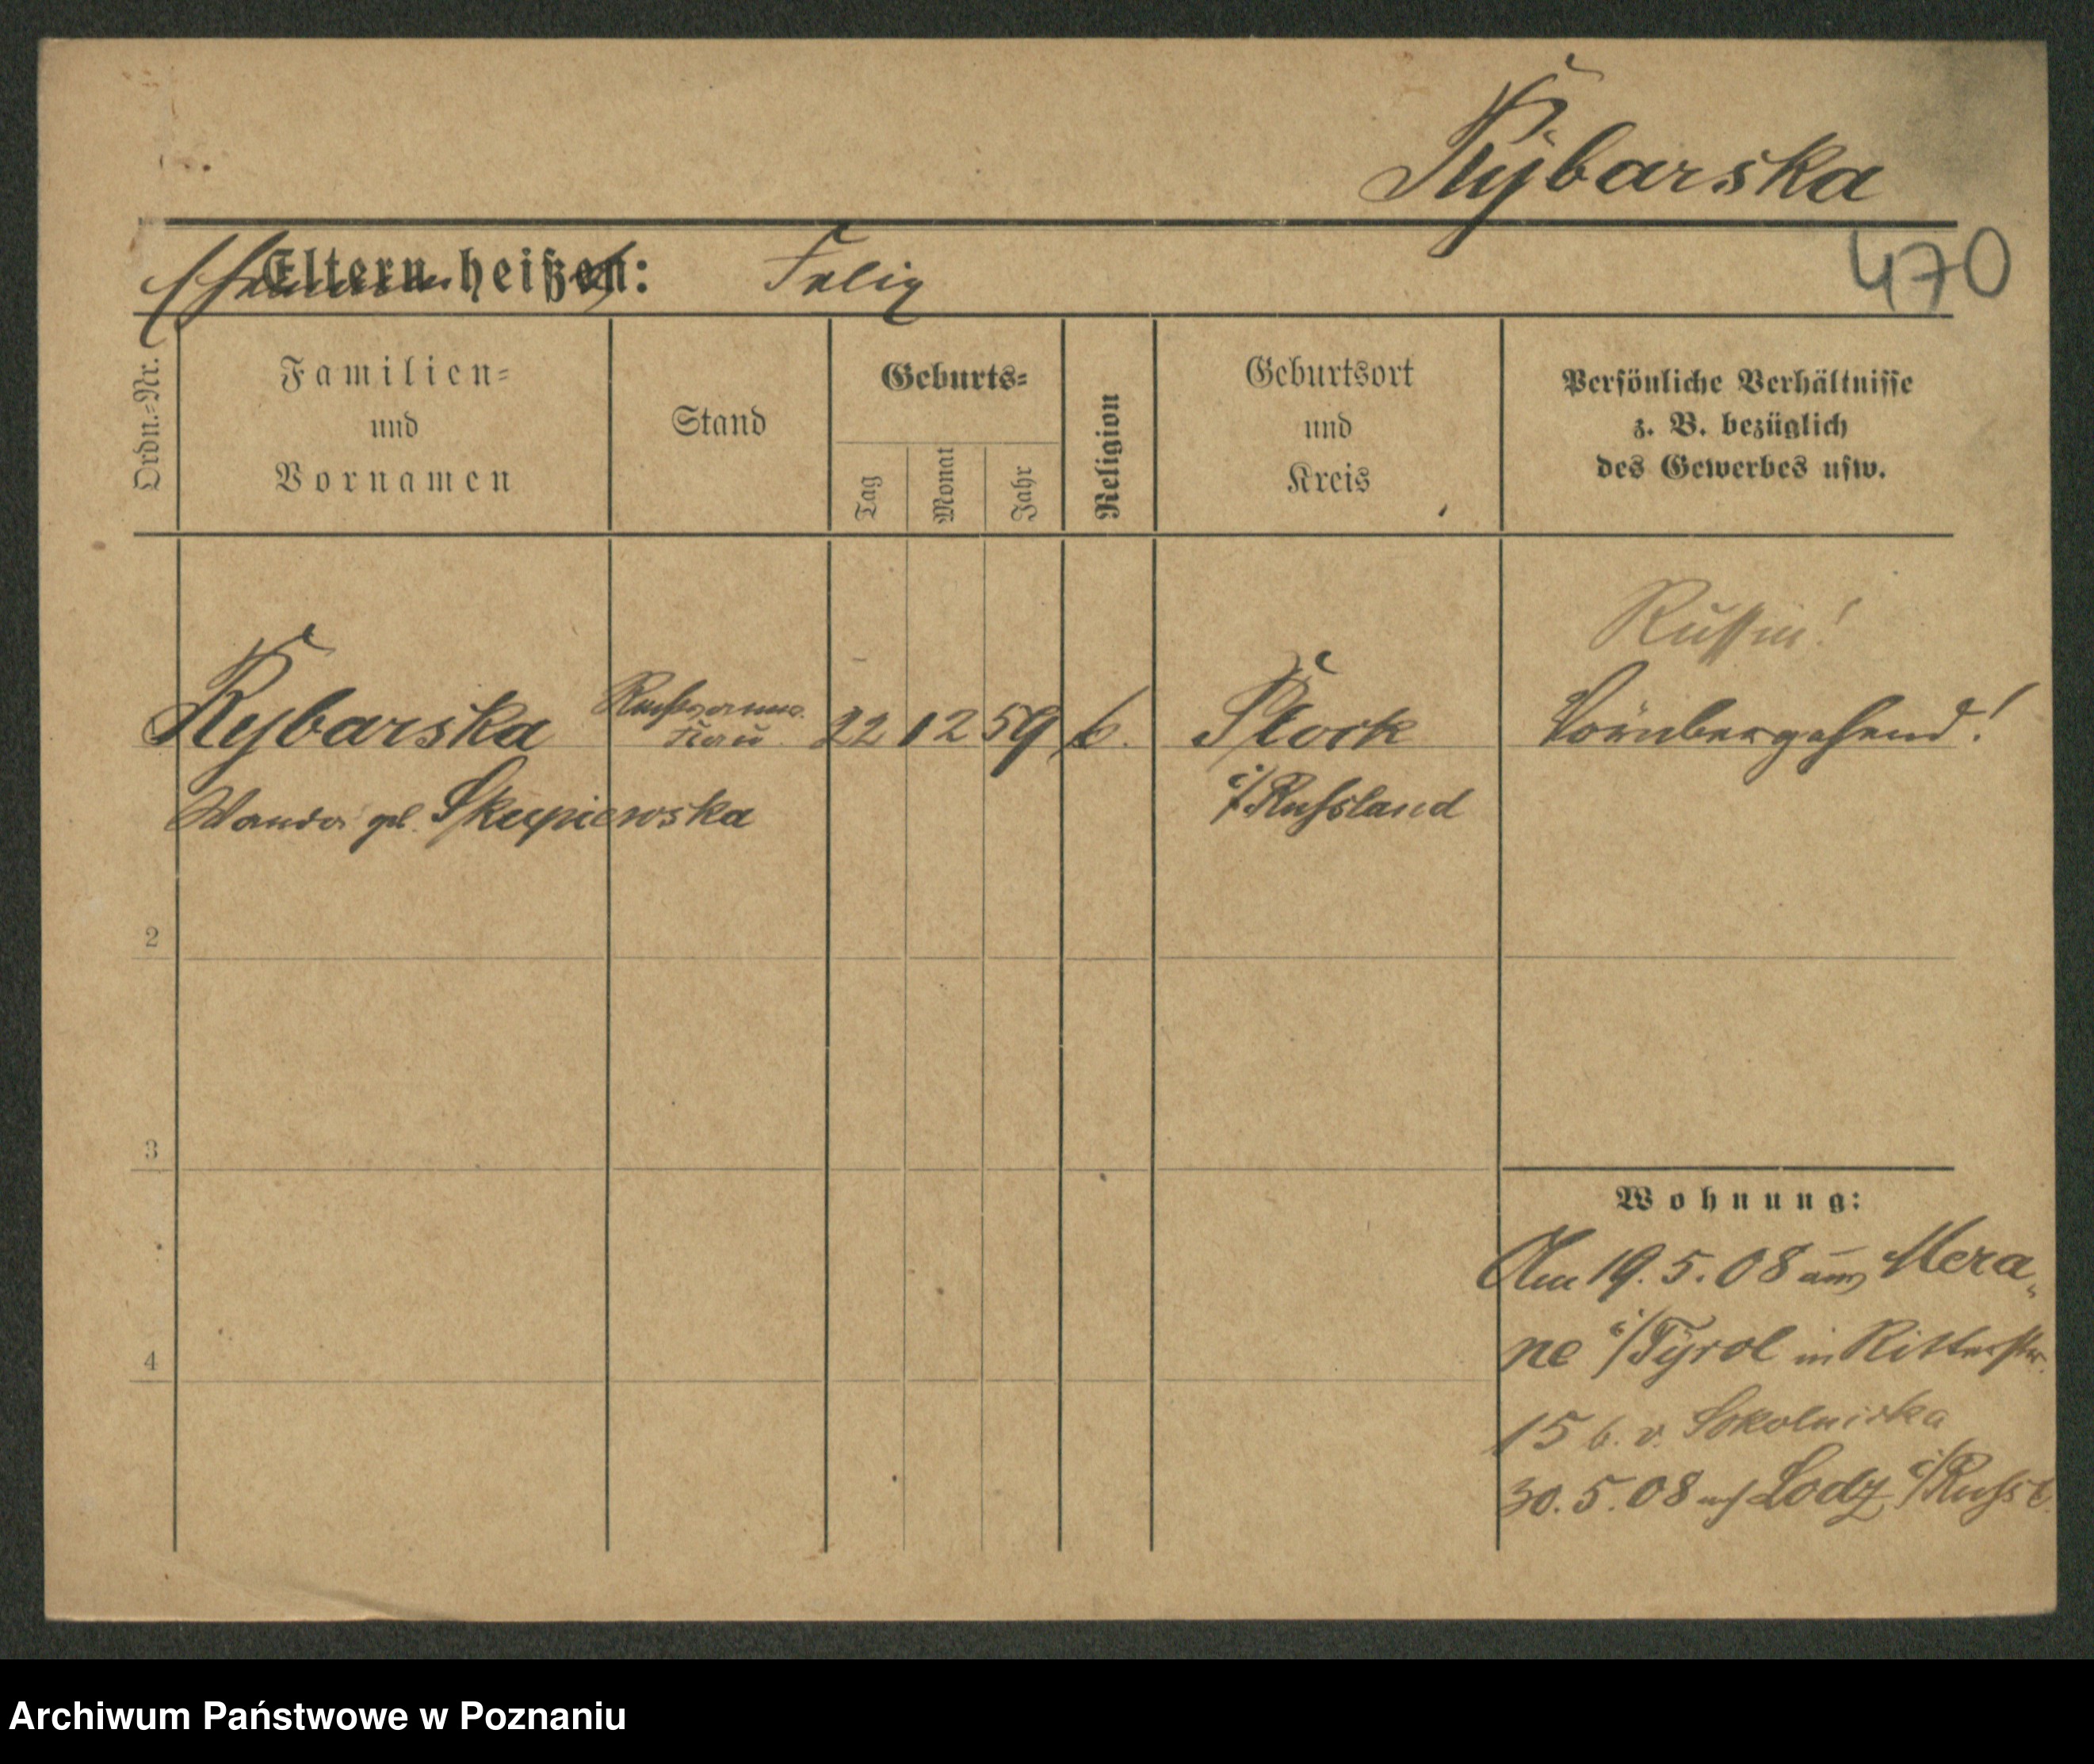 Rybarska
470
Eltern heißen: Felix
Ordn.=Nr.
Familien=
und
Vornamen
Stand
Geburts=
Tag
Monat
Jahr
Religion
Geburtsort
und
Kreis
Persönliche Verhältnisse
z. B. bezüglich
des Gewerbes usw.
Russin!
Rybarska 22 12 59 k. Plock Vorübergehend!
Wanda geb. Skupiewska i/Russland
2
3
4
Wohnung:
Am 19.5.08 aus Mera„
ne i/Tyrol in Ritterstr.
15 b. v. Sokolnicka
30.5.08 nach Lodz i/Russl.
Archiwum Państwowe w Poznaniu